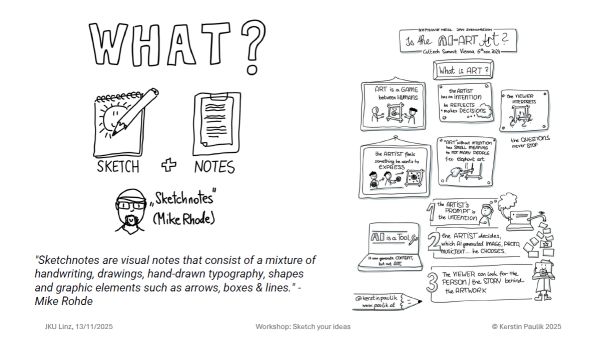 WHAT?
SKETCH + NOTES
"Sketchnotes"
(Mike Rhode)
"Sketchnotes are visual notes that consist of a mixture of
handwriting, drawings, hand-drawn typography, shapes
and graphic elements such as arrows, boxes & lines." -
Mike Rohde
Is the AI-ART Art?
What is ART?
ART is a GAME
between HUMANS
the ARTIST
has an INTENTION
he REFLECTS
makes DECISIONS
the VIEWER
INTERPRETS
the QUESTIONS
never STOP
the ARTIST feels
something he wants to
EXPRESS
"ART without INTENTION
has SMALL MEANING
to not MANY PEOPLE
f.ex elephant art
1 the ARTIST'S
PROMPT is
the INTENTION
AI is a Tool
it can generate CONTENT,
but not ART
2 the ARTIST decides,
which AI generated IMAGE, PROMPT,
he CHOOSES
3 The VIEWER can look for the
PERSON / the STORY behind
the ARTWORK
@kerstinpaulik
www.paulik.at
JKU Linz, 13/11/2025
Workshop: Sketch your ideas
© Kerstin Paulik 2025